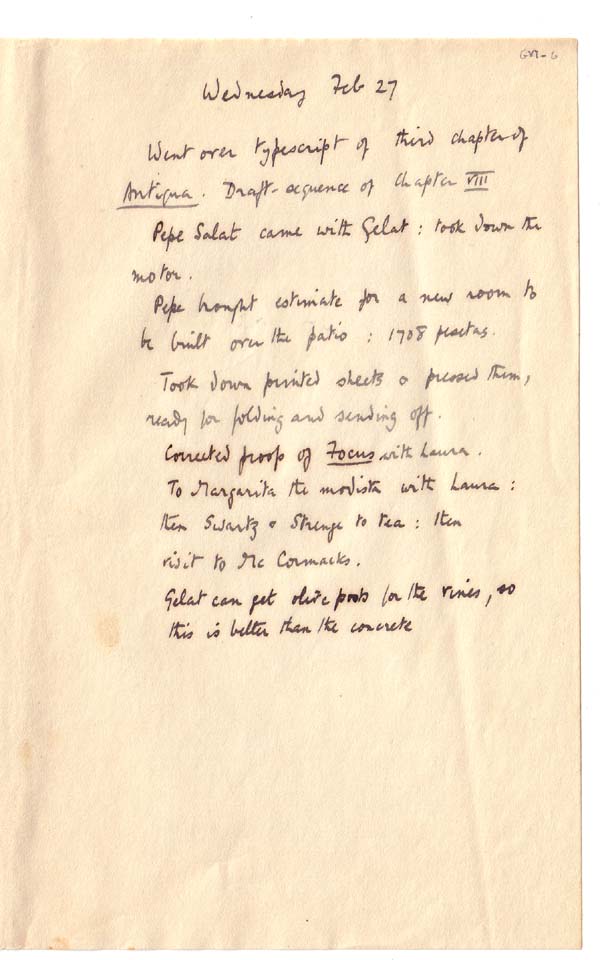 GVI-6
Wednesday Feb 27
Went over typescript of third chapter of
Antigua. Draft-sequence of Chapter VIII
Pepe Salat came with Gelat: took down the
motor.
Pepe brought estimate for a new room to
be built over the patio: 1708 pesetas.
Took down printed sheets & pressed them,
ready for folding and sending off.
Corrected proof of Focus with Laura.
To Margarita the modista with Laura:
then Swartz & Strenge to tea: then
visit to McCormacks.
Gelat can get olive posts for the vines, so
this is better than the concrete